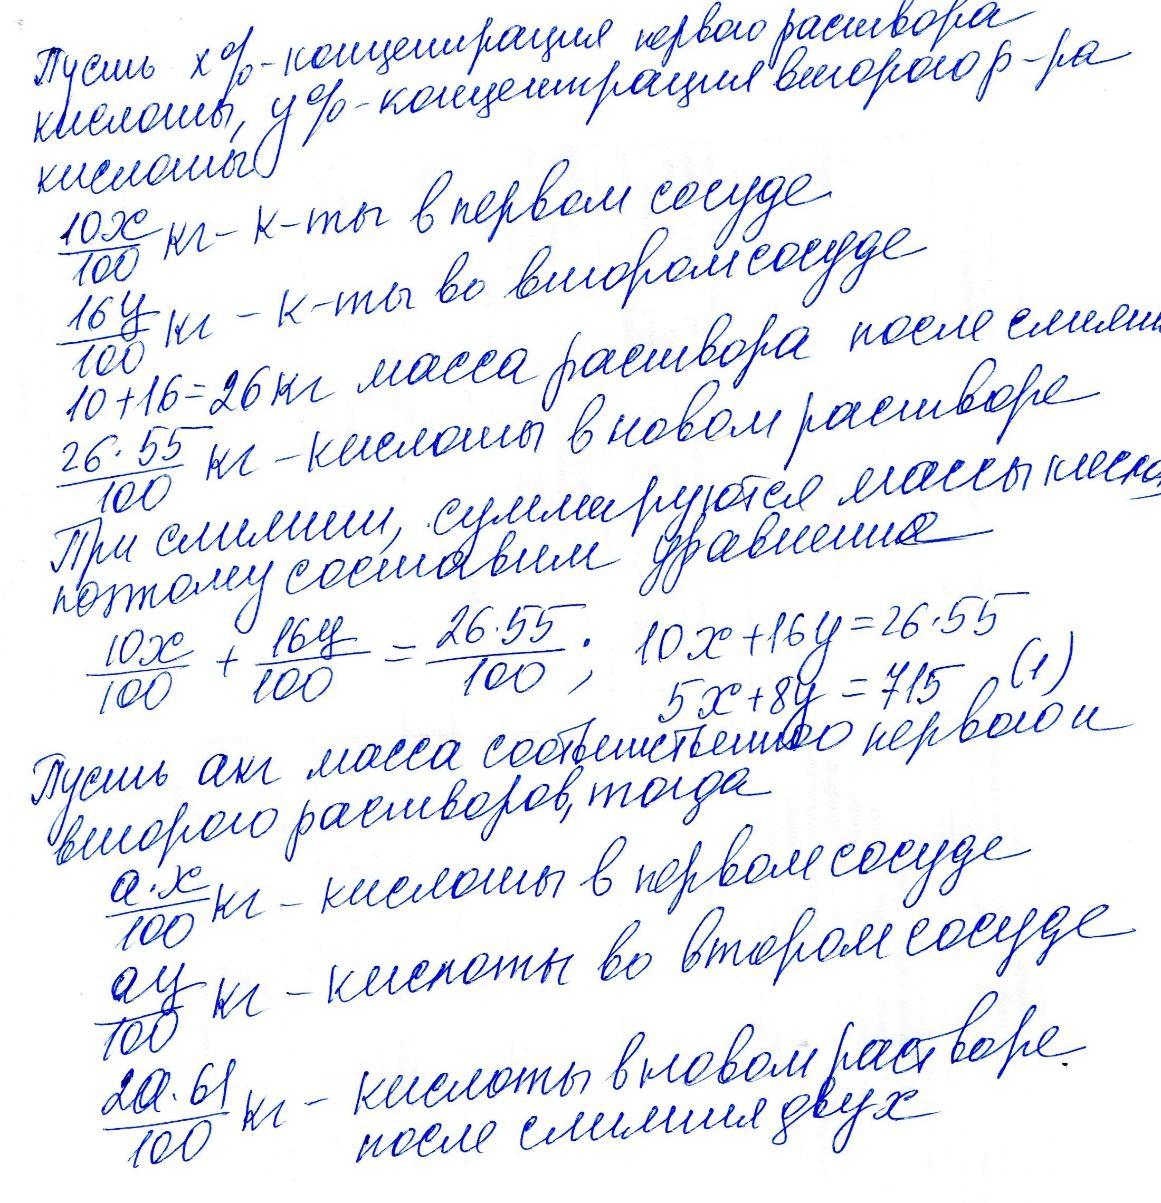 Пусть x%-концентрация первого раствора
кислоты, y%-концентрация второго р-ра
кислоты
10x/100 кг - к-ты в первом сосуде
16y/100 кг - к-ты во втором сосуде
10+16=26 кг масса раствора после слияни
26·55/100 кг - кислоты в новом растворе
При слиянии, суммируются массы кисло
поэтому составим уравнение
10x/100 + 16y/100 = 26·55/100 ; 10x+16y=26·55
5x+8y=715 (1)
Пусть a кг масса соответственно первого и
второго растворов, тогда
a·x/100 кг - кислоты в первом сосуде
ay/100 кг - кислоты во втором сосуде
2a·61/100 кг - кислоты в новом растворе
после слияния двух